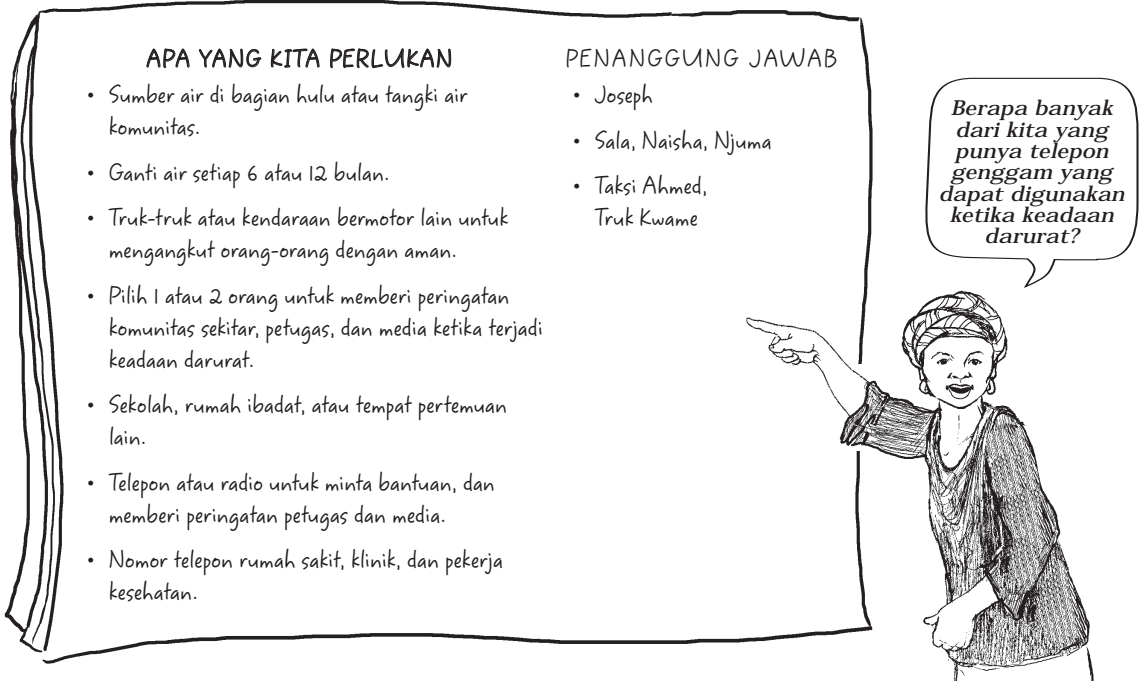 APA YANG KITA PERLUKAN
• Sumber air di bagian hulu atau tangki air
komunitas.
• Ganti air setiap 6 atau 12 bulan.
• Truk-truk atau kendaraan bermotor lain untuk
mengangkut orang-orang dengan aman.
• Pilih 1 atau 2 orang untuk memberi peringatan
komunitas sekitar, petugas, dan media ketika terjadi
keadaan darurat.
• Sekolah, rumah ibadat, atau tempat pertemuan
lain.
• Telepon atau radio untuk minta bantuan, dan
memberi peringatan petugas dan media.
• Nomor telepon rumah sakit, klinik, dan pekerja
kesehatan.
PENANGGUNG JAWAB
• Joseph
• Sala, Naisha, Njuma
• Taksi Ahmed,
Truk Kwame
Berapa banyak
dari kita yang
punya telepon
genggam yang
dapat digunakan
ketika keadaan
darurat?